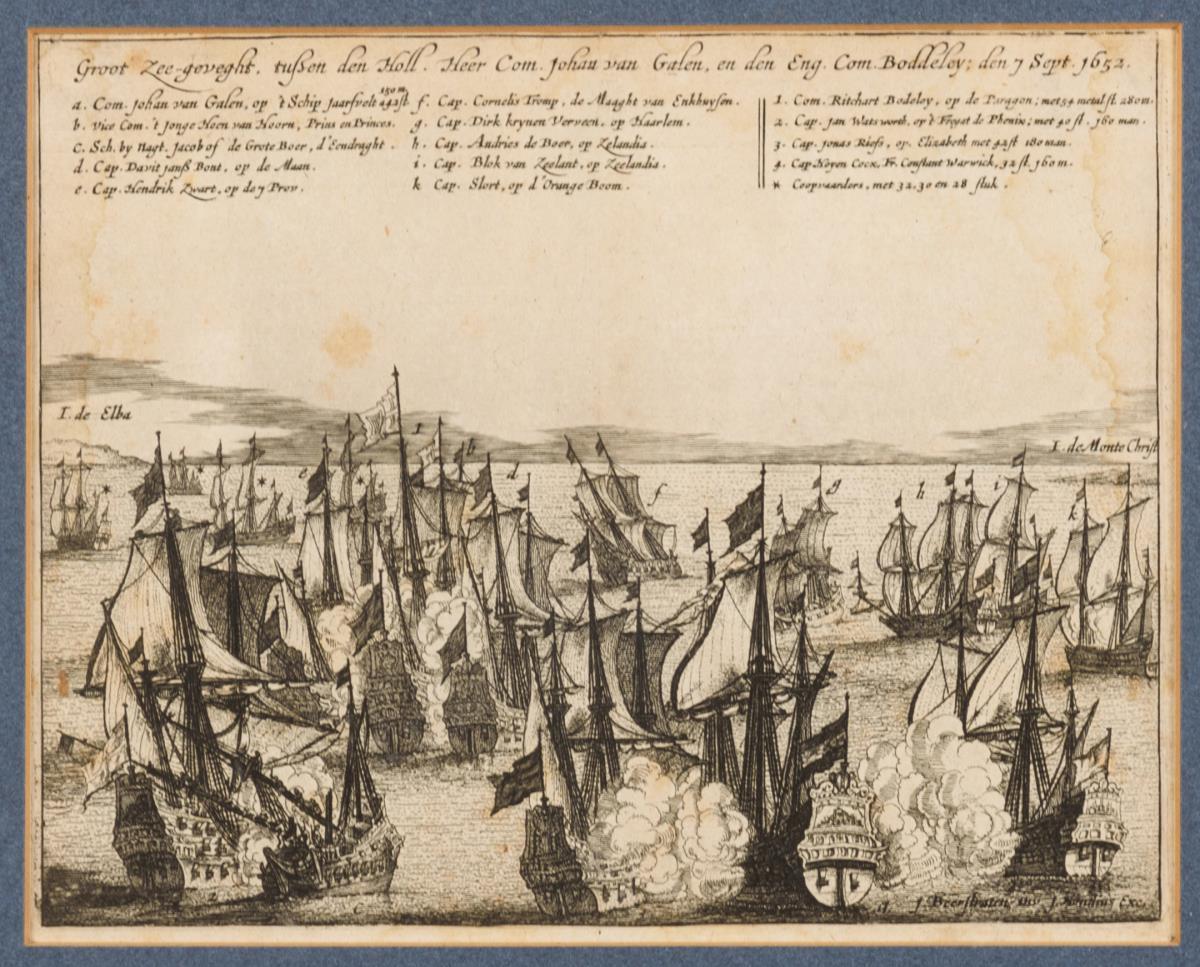 Groot Zee-geveght, tußen den Holl. Heer Com. Johan van Galen, en den Eng. Com. Boddeley; den 7 Sept. 1652.
150 m.
a. Com. Johan van Galen, op 't Schip Jaarsvelt 42 st.
b. Vice Com. 't Jonge Hoen van Hoorn, Prins en Princes.
c. Sch. by Nagt. Jacob of de Grote Boer, d'Eendraght.
d. Cap. Davit janß Bont, op de Maan.
e. Cap. Hendrik Zwart, op de 7 Prov.
f. Cap. Cornelis Tromp, de Maaght van Enkhuysen.
g. Cap. Dirk krynen Verveen, op Haarlem.
h. Cap. Andries de Boer, op Zelandia.
i. Cap. Blok van Zeelant, op Zeelandia.
k Cap. Slort, op d'Orange Boom.
1. Com. Ritchart Bodeley, op de Paragon; met 54 metal st. 280 m.
2. Cap. Jan Wats worth, op 't Fregat de Phenix; met 40 st. 160 man.
3. Cap. Jonas Riefs, op. Elizabeth met 42 st 180 man.
4. Cap. Hoyen Cocx, Fr. Constant Warwick, 32 st. 160 m.
* Coopvaarders, met 32, 30 en 28 stuk.
I. de Elba
I. de Monte Christ
1
b
e
d
f
g
h
i
k
2
c
a.
J. Beerstraten, inv J. Hondius Exc.